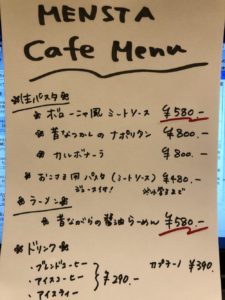 MENSTA
Cafe Menu
※生パスタ※
※ ボローニャ風 ミートソース ¥580.-
※ 昔なつかしの ナポリタン ¥800.-
※ カルボナーラ ¥800.-
※ おこさま用 パスタ (ミートソース) ¥480.-
ジュース付! 小学生まで
※ラーメン※
※ 昔ながらの醤油らーめん ¥580.-
※ドリンク※
・ブレンドコーヒー
・アイスコーヒー ¥290.-
・アイスティー
カプチーノ ¥390.